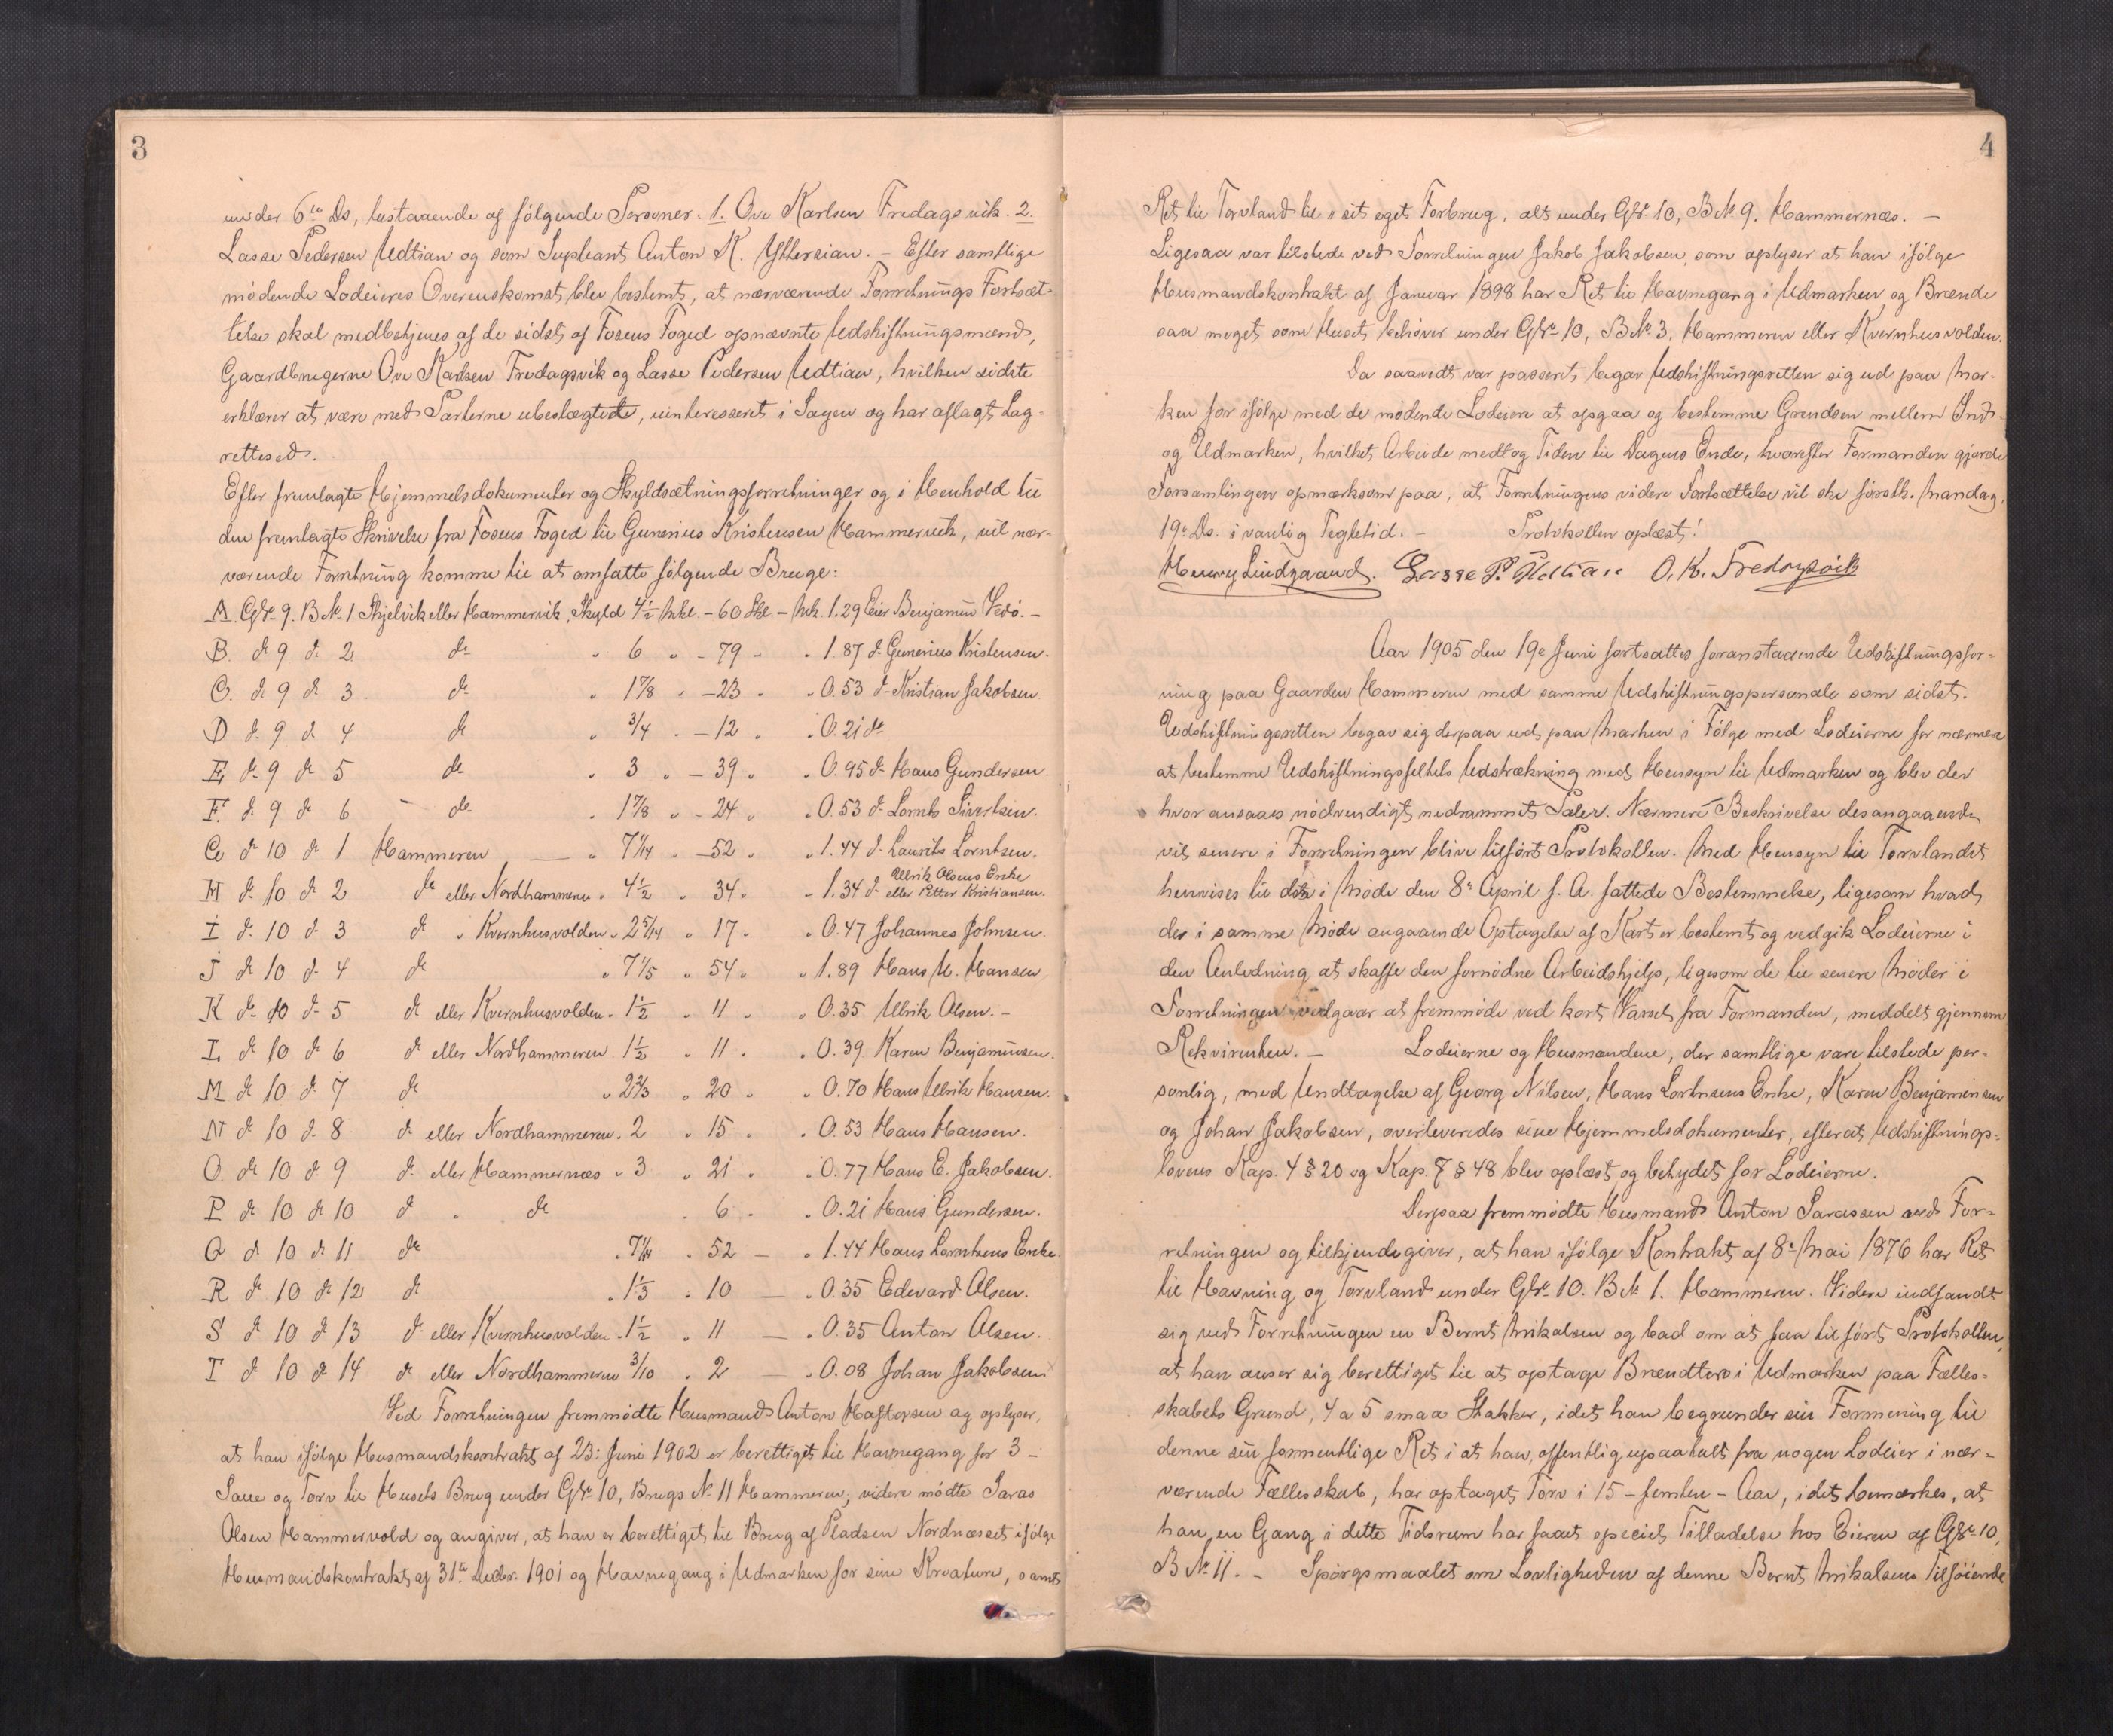 3
under 6te Ds, bestaaende af følgende Personer. 1. Ove Karlsen Fredagsvik. 2.
Lasse Pedersen Udtian og som Supleant Anton K. Yttersian. – Efter samtlige
mødende Lodeieres Overenskomst blev bestemt, at nærværende Forretnings Fortsæt-
telse skal medbetjenes af de sidst af Fosens Foged opnævnte Udskiftningsmænd,
Gaardbrugerne Ove Karlsen Fredagsvik og Lasse Pedersen Udtian, hvilken sidste
erklærer at være med Parterne ubeslægtede, uinteresseret i Sagen og har aflagt Lag-
rettesed.
Efter fremlagte Hjemmelsdokumenter og Skyldsætningsforretninger og i Henhold til
den fremlagte Skrivelse fra Fosens Foged til Gunerius Kristensen Hammervik, vil nær-
værende Forretning komme til at omfatte følgende Bruge:
A. G№ 9. B№ 1 Skjelvik eller Hammervik, Skyld 4½ Mkl. – 60 Skl. – Mk. 1.29 Eier Benjamin Vedö. –
B. do 9 do 2 do " 6 " – 79 – " 1.87 do Gunerius Kristensen.
C. do 9 do 3 do " 1⅞ " – 23 " " 0.53 do Kristian Jakobsen
D do 9 do 4 do " ¾ " – 12 " " 0.21 do
E do 9 do 5 do " 3 " – 39 " " 0.95 do Hans Gundersen
F. do 9 do 6 do " 1⅞ " – 24 " " 0.53 do Lornts Sivertsen.
G do 10 do 1 Hammeren — " 7 1/14 " – 52 " " 1.44 do Laurits Lorntsen.
Ullrik Olsens Enke
H do 10 do 2 do eller Nordhammeren " 4½ " 34 " – 1.34 do eller Petter Kristiansen.
I do 10 do 3 do " Kvernhusvolden " 2 5/14 " 17 " " 0.47 Johannes Johnsen.
J do 10 do 4 do " 7 1/5 " 54 " " 1.89 Hans U. Hansen
K do 10 do 5 do eller Kvernhusvolden " 1½ " 11 " " 0.35 Ulrik Olsen. –
L do 10 do 6 do eller Nordhammeren 1½ " 11 " " 0.39 Karen Benjaminsen.
M do 10 do 7 do " 2⅔ " 20 " " 0.70 Hans Ulrik Hansen.
N do 10 do 8 do eller Nordhammeren " 2 " 15 " " 0.53 Hans Hansen.
O. do 10 do 9 do eller Hammernæs " 3 " 21 " " 0.77 Hans E. Jakobsen.
P do 10 do 10 do " do " 6 " " 0.21 Hans Gundersen.
Q do 10 do 11 do " 7 1/14 " 52 — " 1.44 Hans Lorntsens Enke
R do 10 do 12 do " 1⅓ " 10 — " 0.35 Edevard Olsen.
S do 10 do 13 do eller Kvernhusvolden " 1½ " 11 — " 0.35 Anton Olsen.
T do 10 do 14 do eller Nordhammeren 3/10 " 2 — " 0.08 Johan Jakobsen
Ved Forretningen fremmødte Husmand Anton Haftorsen og oplyser,
at han ifølge Husmandskontrakt af 23: Juni 1902 er berettiget til Havnegang for 3 –
Saue og Torv til Husets Brug under G№ 10, Brugs № 11 Hammeren; videre mødte Saras
Olsen Hammervold og angiver, at han er berettiget til Brug af Pladsen Nordnæsset ifølge
Husmandskontrakt af 31te Decbr. 1901 og Havnegang i Udmarken for sine Kreature, samt
4
Ret til Torvland til sit eget Forbrug, alt under G№ 10, B№ 9. Hammernæs. –
Ligesaa var tilstede ved Forretningen Jakob Jakobsen, som oplyser at han ifølge
Husmandskontrakt af Januar 1898 har Ret til Havnegang i Udmarken og Brænde
saa meget som Huset behøver under G№ 10, B№ 3. Hammeren eller Kvernhusvolden.
Da saavidt var passeret, begav Udskiftningsretten sig ud paa Mar-
ken for ifølge med de mødende Lodeiere at opgaa og bestemme Grændsen mellem Ind-
og Udmarken, hvilket Arbeide medtog Tiden til Dagens Ende, hvorefter Formanden gjorde
Forsamlingen opmærksom paa, at Forretningens videre Fortsættelse vil ske førstk. Mandag,
19e Ds. i vanlig Tegtetid. – Protokollen oplæst!
Henry Lindgaard. Lasse P. Udtian O. K. Fredagsvik
Aar 1905 den 19e Juni fortsattes foranstaaende Udskiftningsfor-
ning paa Gaarden Hammeren med samme Udskiftningspersonale som sidst.
Udskiftningsretten begav sig derpaa ud paa Marken i Følge med Lodeierne for nærmere
at bestemme Udskiftningsfeltets Udstrækning med Hensyn til Udmarken og blev der
hvor ansaaes nødvendigt nedrammet Pæler. Nærmere Beskrivelse desangaaende
vil senere i Forretningen blive tilført Protokollen. Med Hensyn til Torvlandet
henvises til den i Møde den 8e April f. A. fattede Bestemmelse, ligesom hvad
der i samme Møde angaaende Optagelse af Kart er bestemt og vedgik Lodeierne i
den Anledning at skaffe den fornødne Arbeidshjelp, ligesom de til senere Møder i
Forretningen vedgaar at fremmøde ved kort Varsel fra Formanden, meddelt gjennem
Rekvirenten. – Lodeierne og Husmændene, der samtlige vare tilstede per-
sonlig, med Undtagelse af Georg Nilsen, Hans Lorntsens Enke, Karen Benjaminsen
og Johan Jakobsen, overleveredes sine Hjemmelsdokumenter, efterat Udskiftnings-
lovens Kap. 4 § 20 og Kap. 7 § 48 blev oplæst og betydet for Lodeierne.
Derpaa fremmødte Husmand Anton Sarassen ved For-
retningen og tilkjendegiver, at han ifølge Kontrakt af 8e Mai 1876 har Ret
til Havning og Torvland under G№ 10. B№ 1. Hammeren. Videre indfandt
sig ved Forretningen en Bernt Mikalsen og bad om at faa tilført Protokollen,
at han anser sig berettiget til at optage Brændtorv i Udmarken paa Fælles-
skabets Grund, 4 a 5 smaa Stakker, idet han begrunder sin Formening til
denne sin formentlige Ret i at han, offentlig upaatalt fra nogen Lodeier i nær-
værende Fællesskab, har optaget Torv i 15 – femten – Aar, idet bemærkes, at
han en Gang i dette Tidsrum har faaet speciel Tilladelse hos Eieren af G№ 10,
B№ 11. – Spørgsmaalet om Lovligheden af denne Bernt Mikalsens Tilføiende